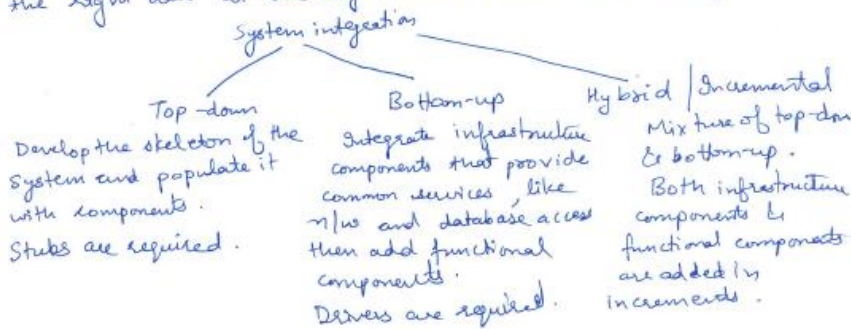 the
System integration
Top-down
Develop the skeleton of the
system and populate it
with components.
Stubs are required.
Bottom-up
Integrate infrastructure
components that provide
common services, like
n/w and database access
then add functional
components.
Drivers are required.
Hybrid / Incremental
Mixture of top-down
& bottom-up.
Both infrastructure
components &
functional components
are added in
increments.